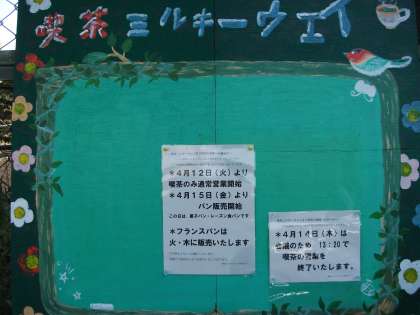 喫茶 ミルキーウェイ
＊4月12日（火）より
喫茶のみ通常営業開始
＊4月15日（金）より
パン販売開始
この日は、菓子パン・レーズン食パンです
＊フランスパンは
火・木に販売いたします
＊4月14日（木）は
ため 13:20で
喫茶の営業を
終了いたします。